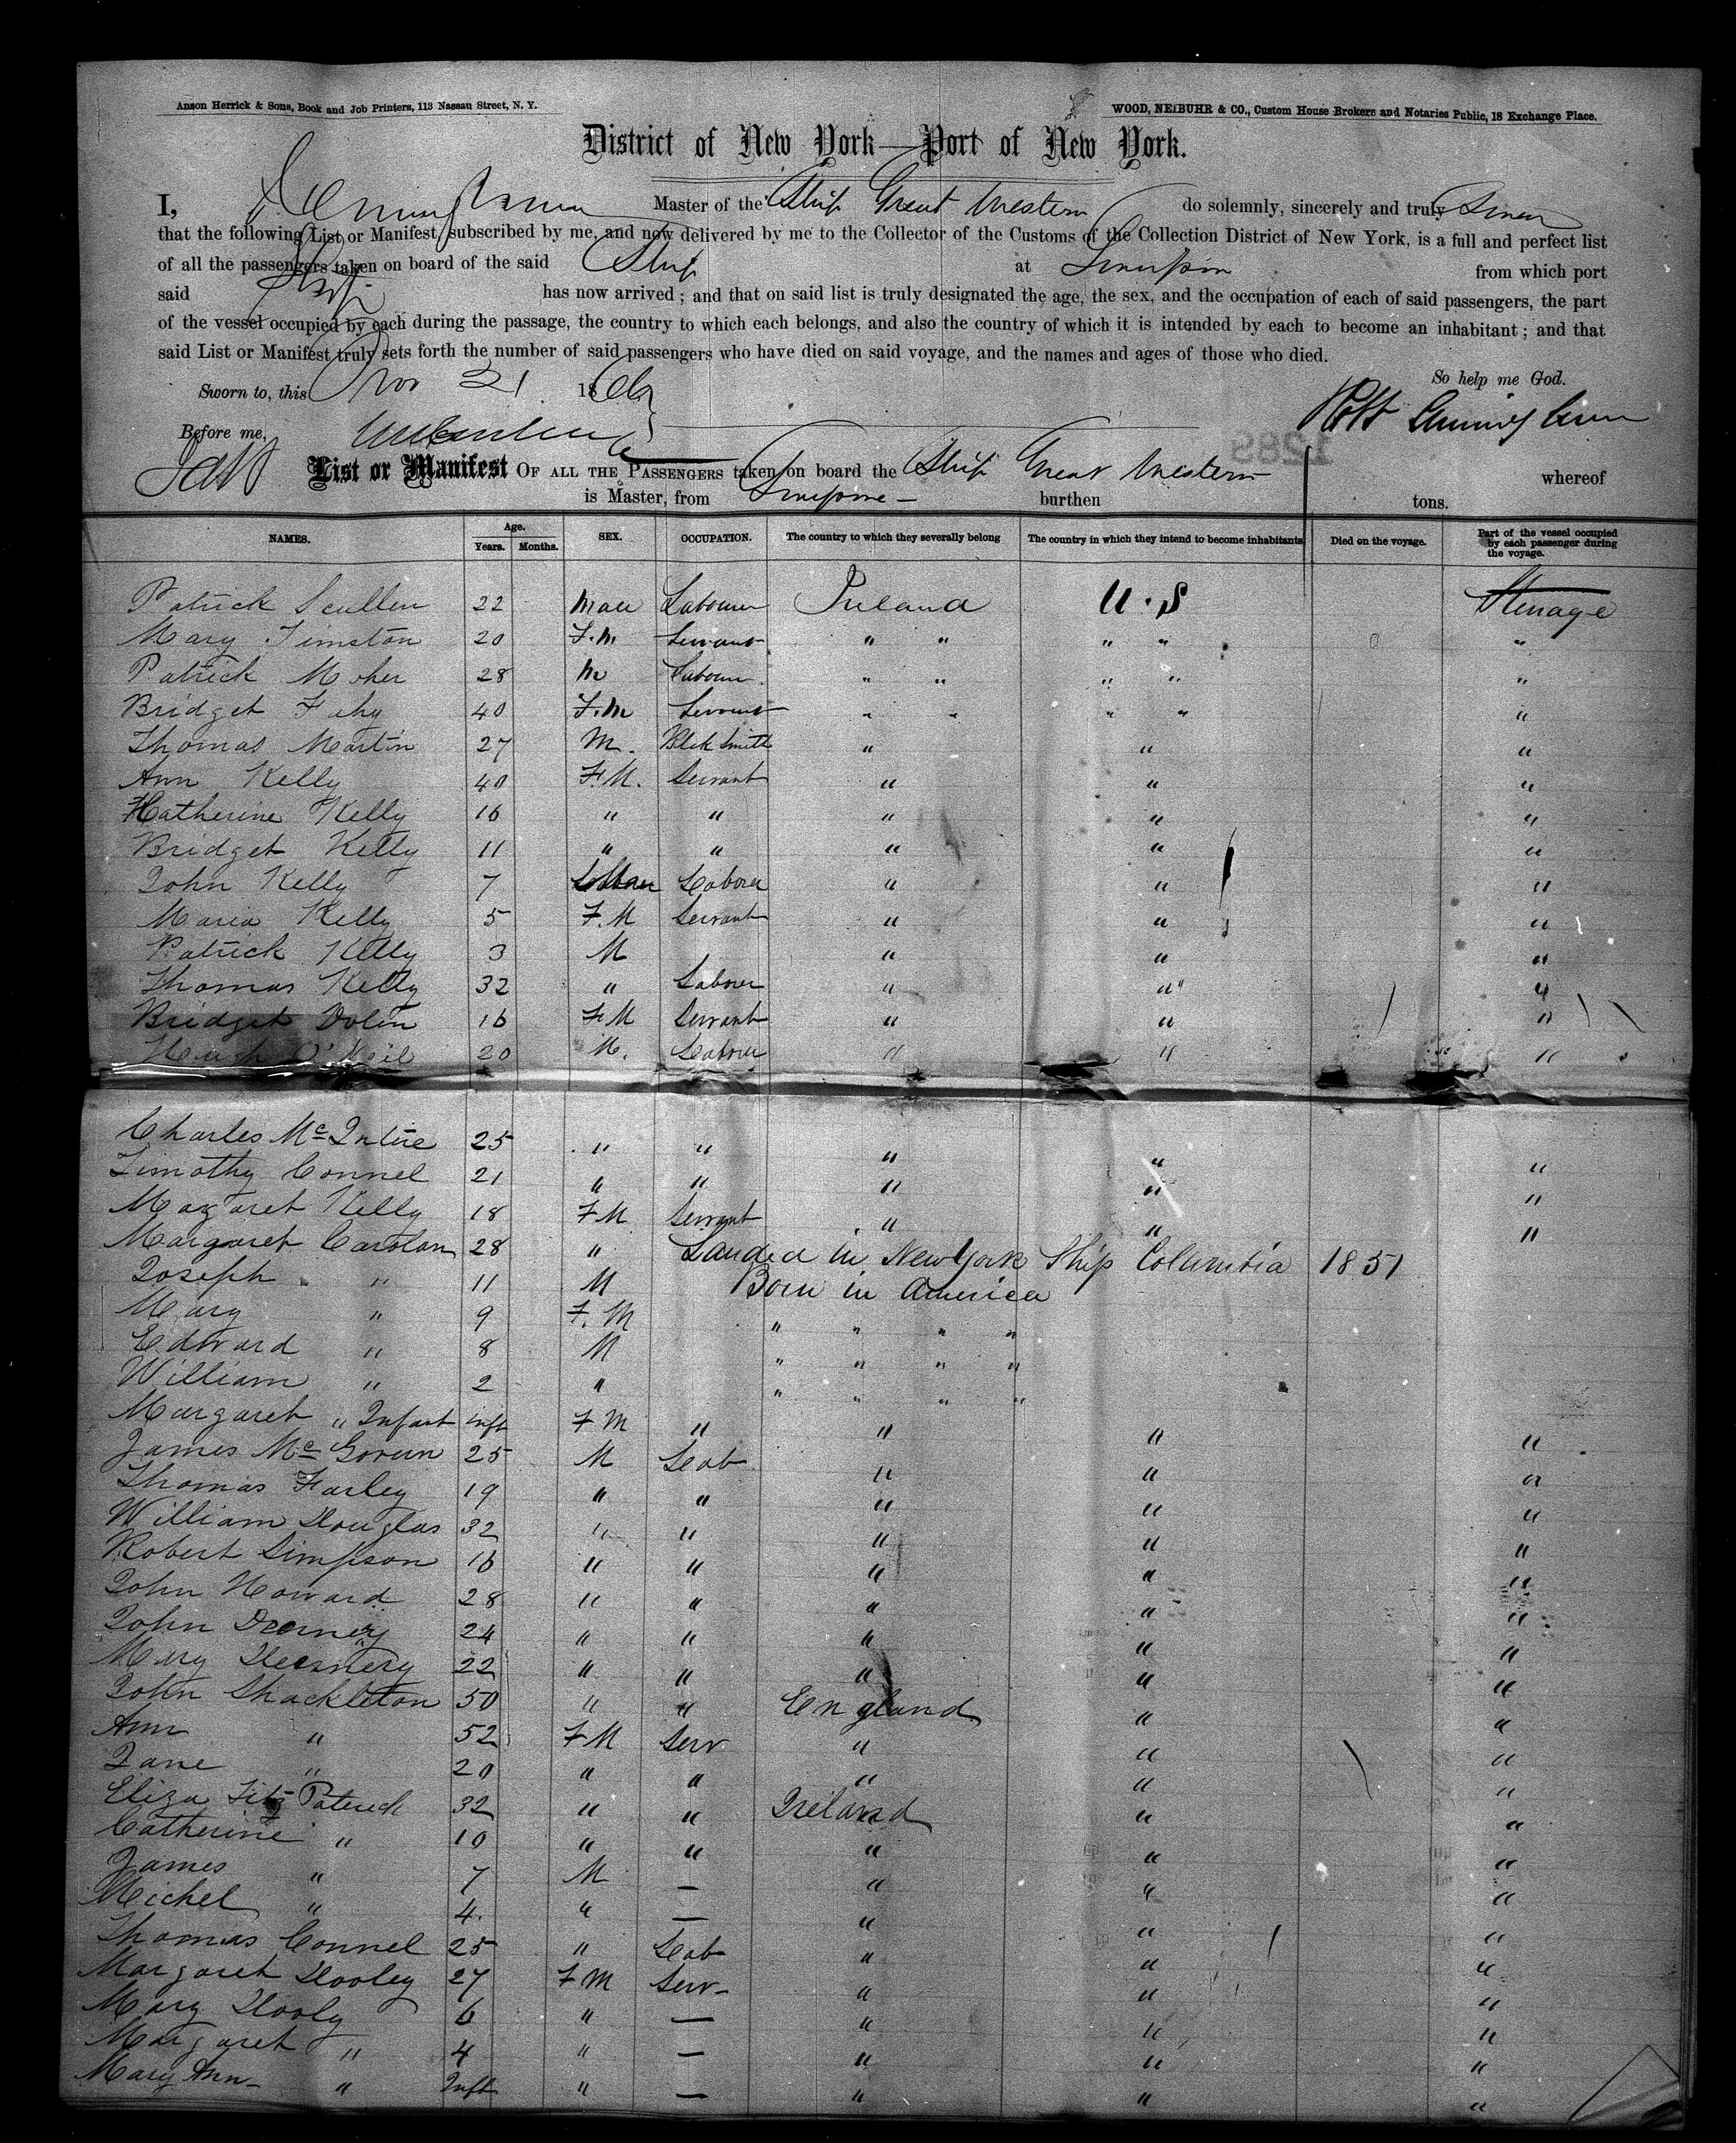 Anson Herrick & Sons, Book and Job Printers, 113 Nassau Street, N. Y.
WOOD, NEIBUHR & CO., Custom House Brokers and Notaries Public, 18 Exchange Place.
District of New York—Port of New York.
I, Master of the Ship Great Western do solemnly, sincerely and truly Swear
that the following List or Manifest, subscribed by me, and now delivered by me to the Collector of the Customs of the Collection District of New York, is a full and perfect list
of all the passengers taken on board of the said Ship at Liverpool from which port
said Ship has now arrived; and that on said list is truly designated the age, the sex, and the occupation of each of said passengers, the part
of the vessel occupied by each during the passage, the country to which each belongs, and also the country of which it is intended by each to become an inhabitant; and that
said List or Manifest truly sets forth the number of said passengers who have died on said voyage, and the names and ages of those who died.
So help me God.
Sworn to, this Nov 21 18
Before me,
1289
List or Manifest OF ALL THE PASSENGERS taken on board the Ship Great Western whereof
is Master, from burthen tons.
NAMES. Age. Years. Months. SEX. OCCUPATION. The country to which they severally belong The country in which they intend to become inhabitants Died on the voyage. Part of the vessel occupied by each passenger during the voyage.
Patrick Scullen 22 Male Labourer Ireland U.S Steerage
Mary Timston 20 F.M Servant " " " " "
Patrick Moher 28 M Labourer " " " " "
Bridget Fahy 40 F.M Servant " " " " "
Thomas Martin 27 M. Blck Smith " " "
Ann Kelly 40 F.M. Servant " " "
Catherine Kelly 16 " " " " "
Bridget Kelly 11 " " " " "
John Kelly 7 Labourer " " "
Maria Kelly 5 F.M Servant " " "
Patrick Kelly 3 M " " "
Thomas Kelly 32 " Labourer " " "
Bridget Dolin 16 F.M Servant " " "
Hugh O'Neil 20 M. Labourer " " "
Charles McIntire 25 " " " " "
Timothy Connel 21 " " " " "
Margaret Kelly 18 F M Servant " " "
Margaret Carolan 28 " Landed in New York Ship Columbia 1851
Joseph " 11 M Born in America
Mary " 9 F.M " " " "
Edward " 8 M " " " "
William " 2 " " " " "
Margaret " Infant inft F M " " " "
James McGovern 25 M Lab " " "
Thomas Farley 19 " " " " "
William Douglas 32 " " " " "
Robert Simpson 16 " " " " "
John Howard 28 " " " " "
John Deerney 24 " " " " "
Mary Deernery 22 " " " " "
John Shackleton 50 " " England " "
Ann " 52 F M Serv " " "
Jane " 20 " " " " "
Eliza Fitz Patrick 32 " " Ireland " "
Catherine " 10 " " " " "
James " 7 M — " " "
Michel " 4. " — " " "
Thomas Connel 25 " Lab " " "
Margaret Dooley 27 F M Serv- " " "
Mary Dooly 6 " — " " "
Margaret " 4 " — " " "
Mary Ann- " Inft " — " " "